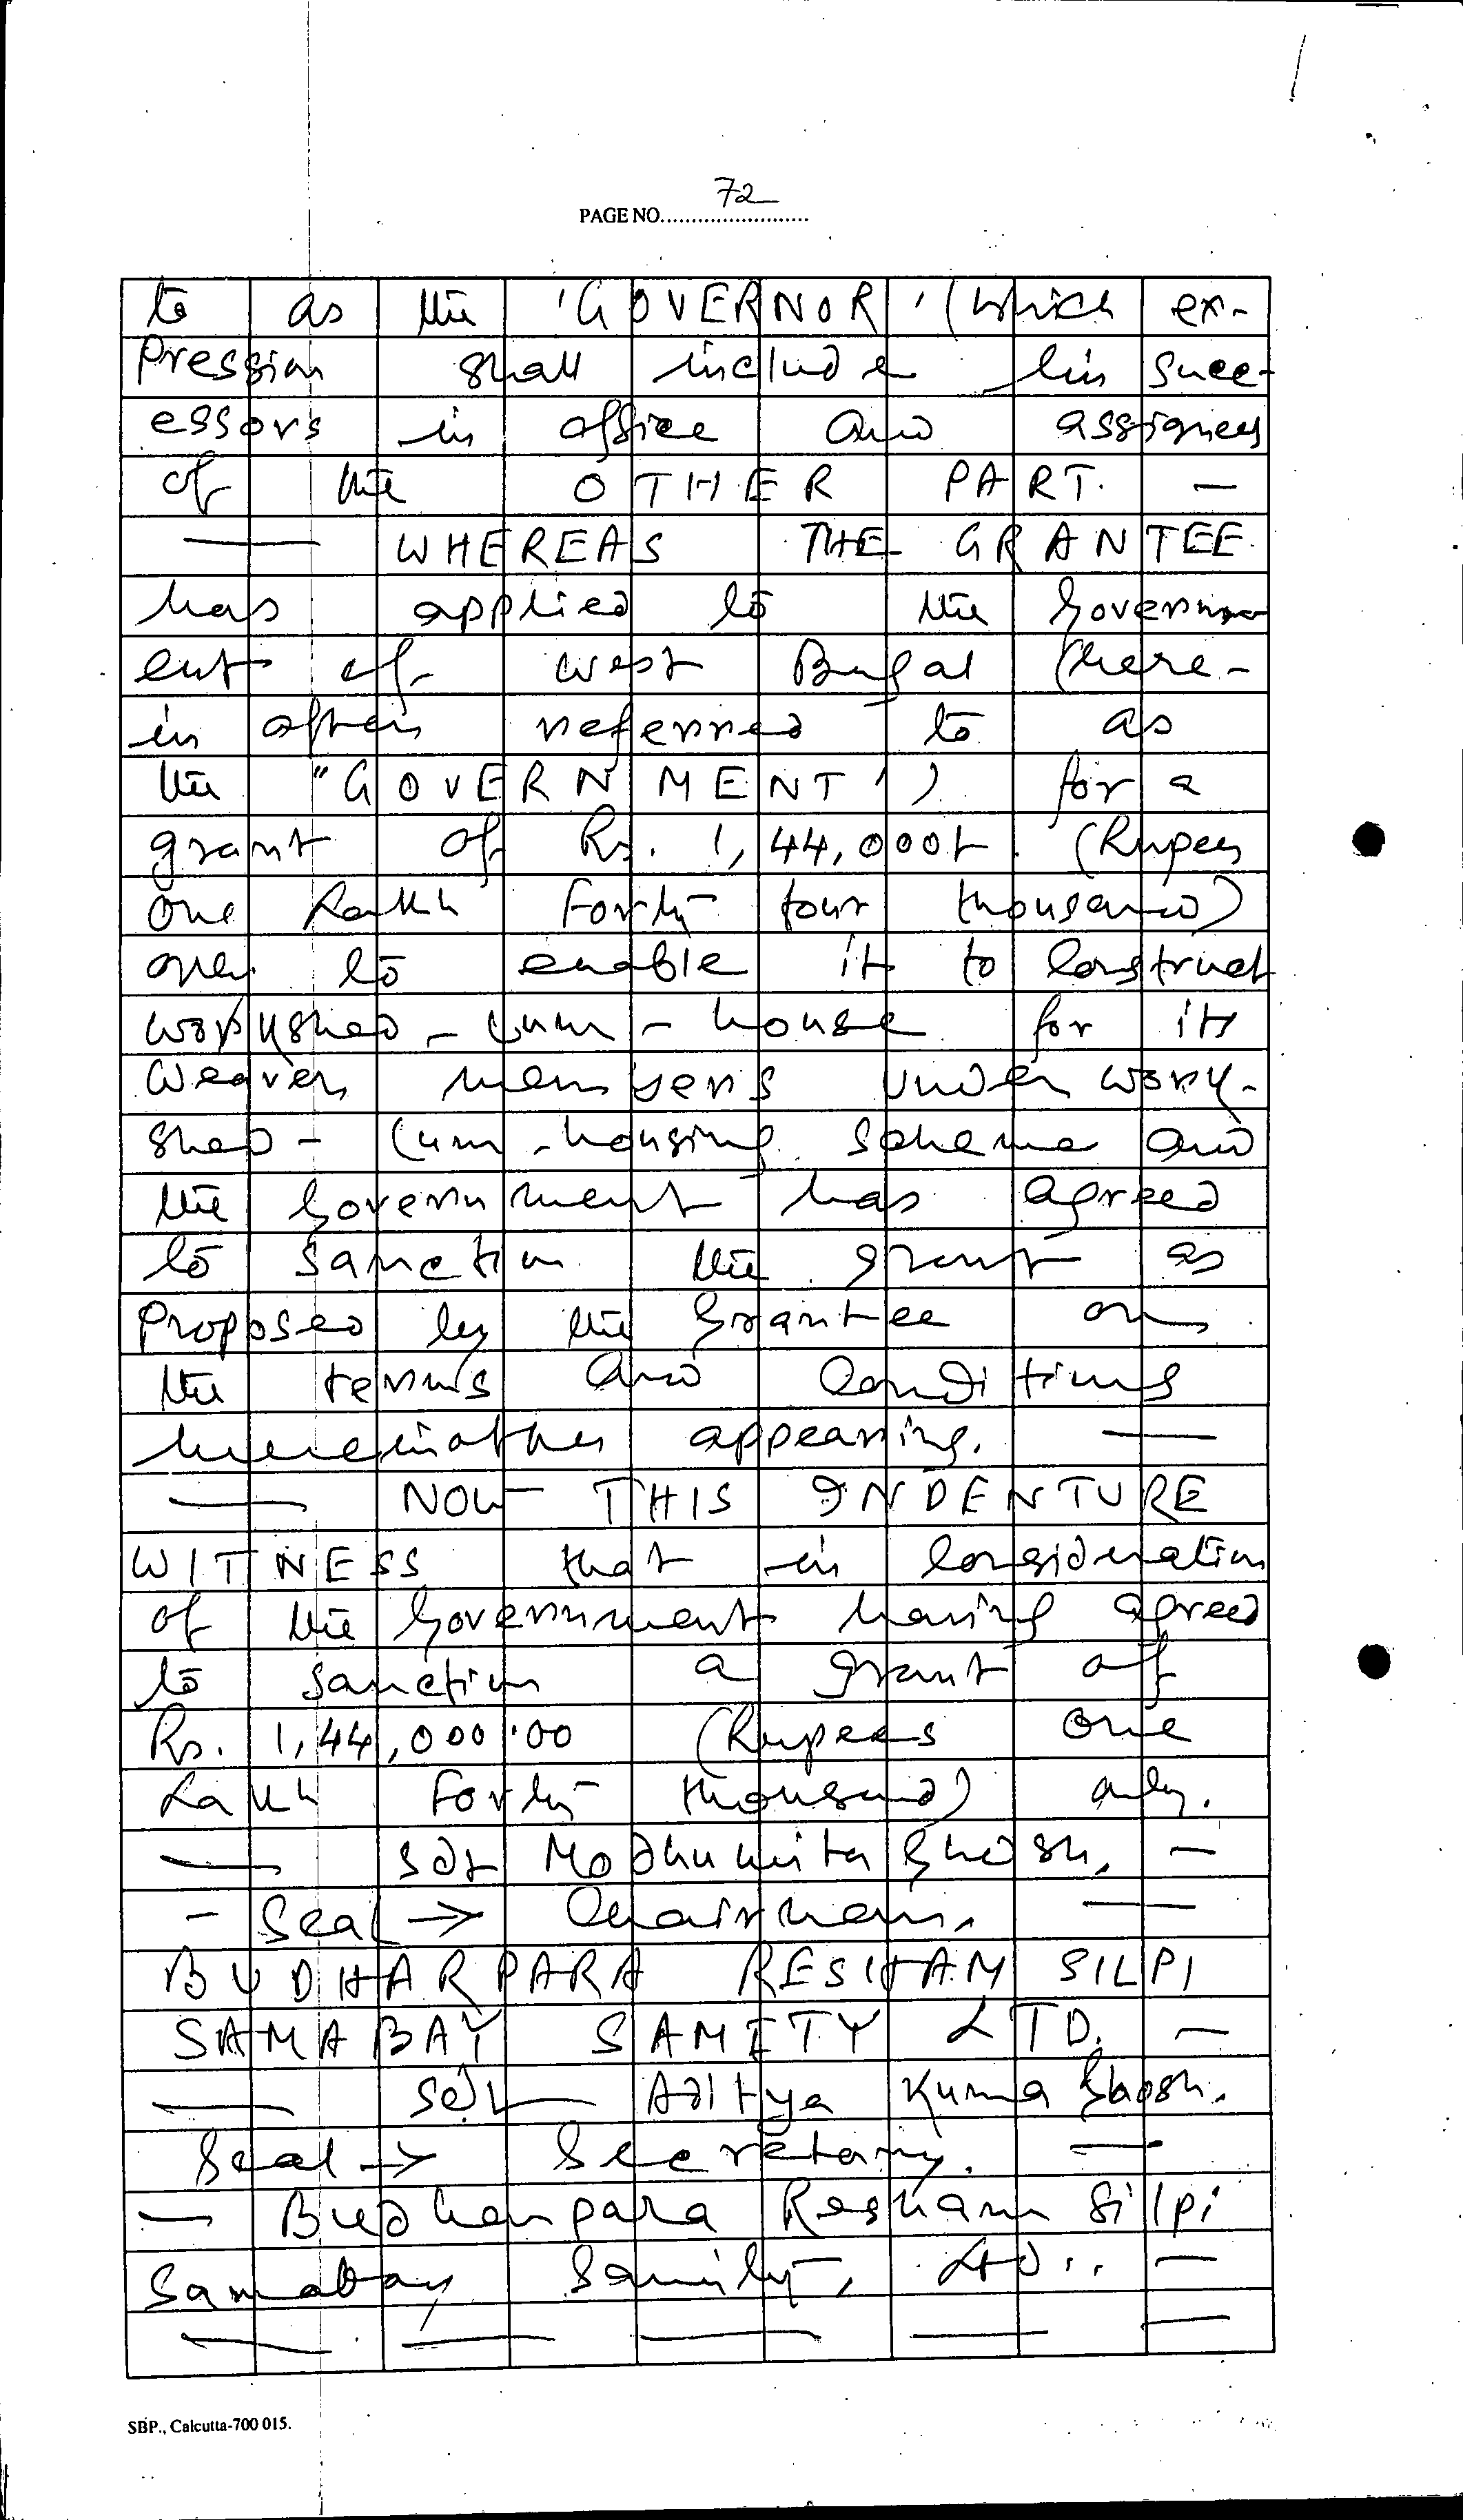 72
PAGE NO........................
to as the 'GOVERNOR' (which ex-
pression shall include his succ-
essors in office and assignees
of the OTHER PART. —
— WHEREAS THE GRANTEE
has applied to the Governm
ent of West Bengal (here-
in after referred to as
the "GOVERNMENT') for a
grant of Rs. 1,44,000/- (Rupees
one Lakh Forty four thousand)
only to enable it to construct
workshed-cum-house for its
weaver members under work-
shed-cum-housing scheme and
the Government has agreed
to sanction the grant as
proposed by the Grantee on
the terms and conditions
hereinafter appearing. —
— NOW THIS INDENTURE
WITNESS that in consideration
of the Government having agreed
to sanction a grant of
Rs. 1,44,000.00 (Rupees one
Lakh Forty thousand) only.
— Sd/- Modhumita Ghosh. —
- Seal → Chairman. —
BUDHARPARA RESHAM SILPI
SAMABAY SAMITY LTD. —
— Sd/- Aditya Kumar Ghosh.
Seal → Secretary. —
— Budharpara Resham Silpi
Samabay Samity, Ltd.. —
— — — — —
SBP., Calcutta-700 015.